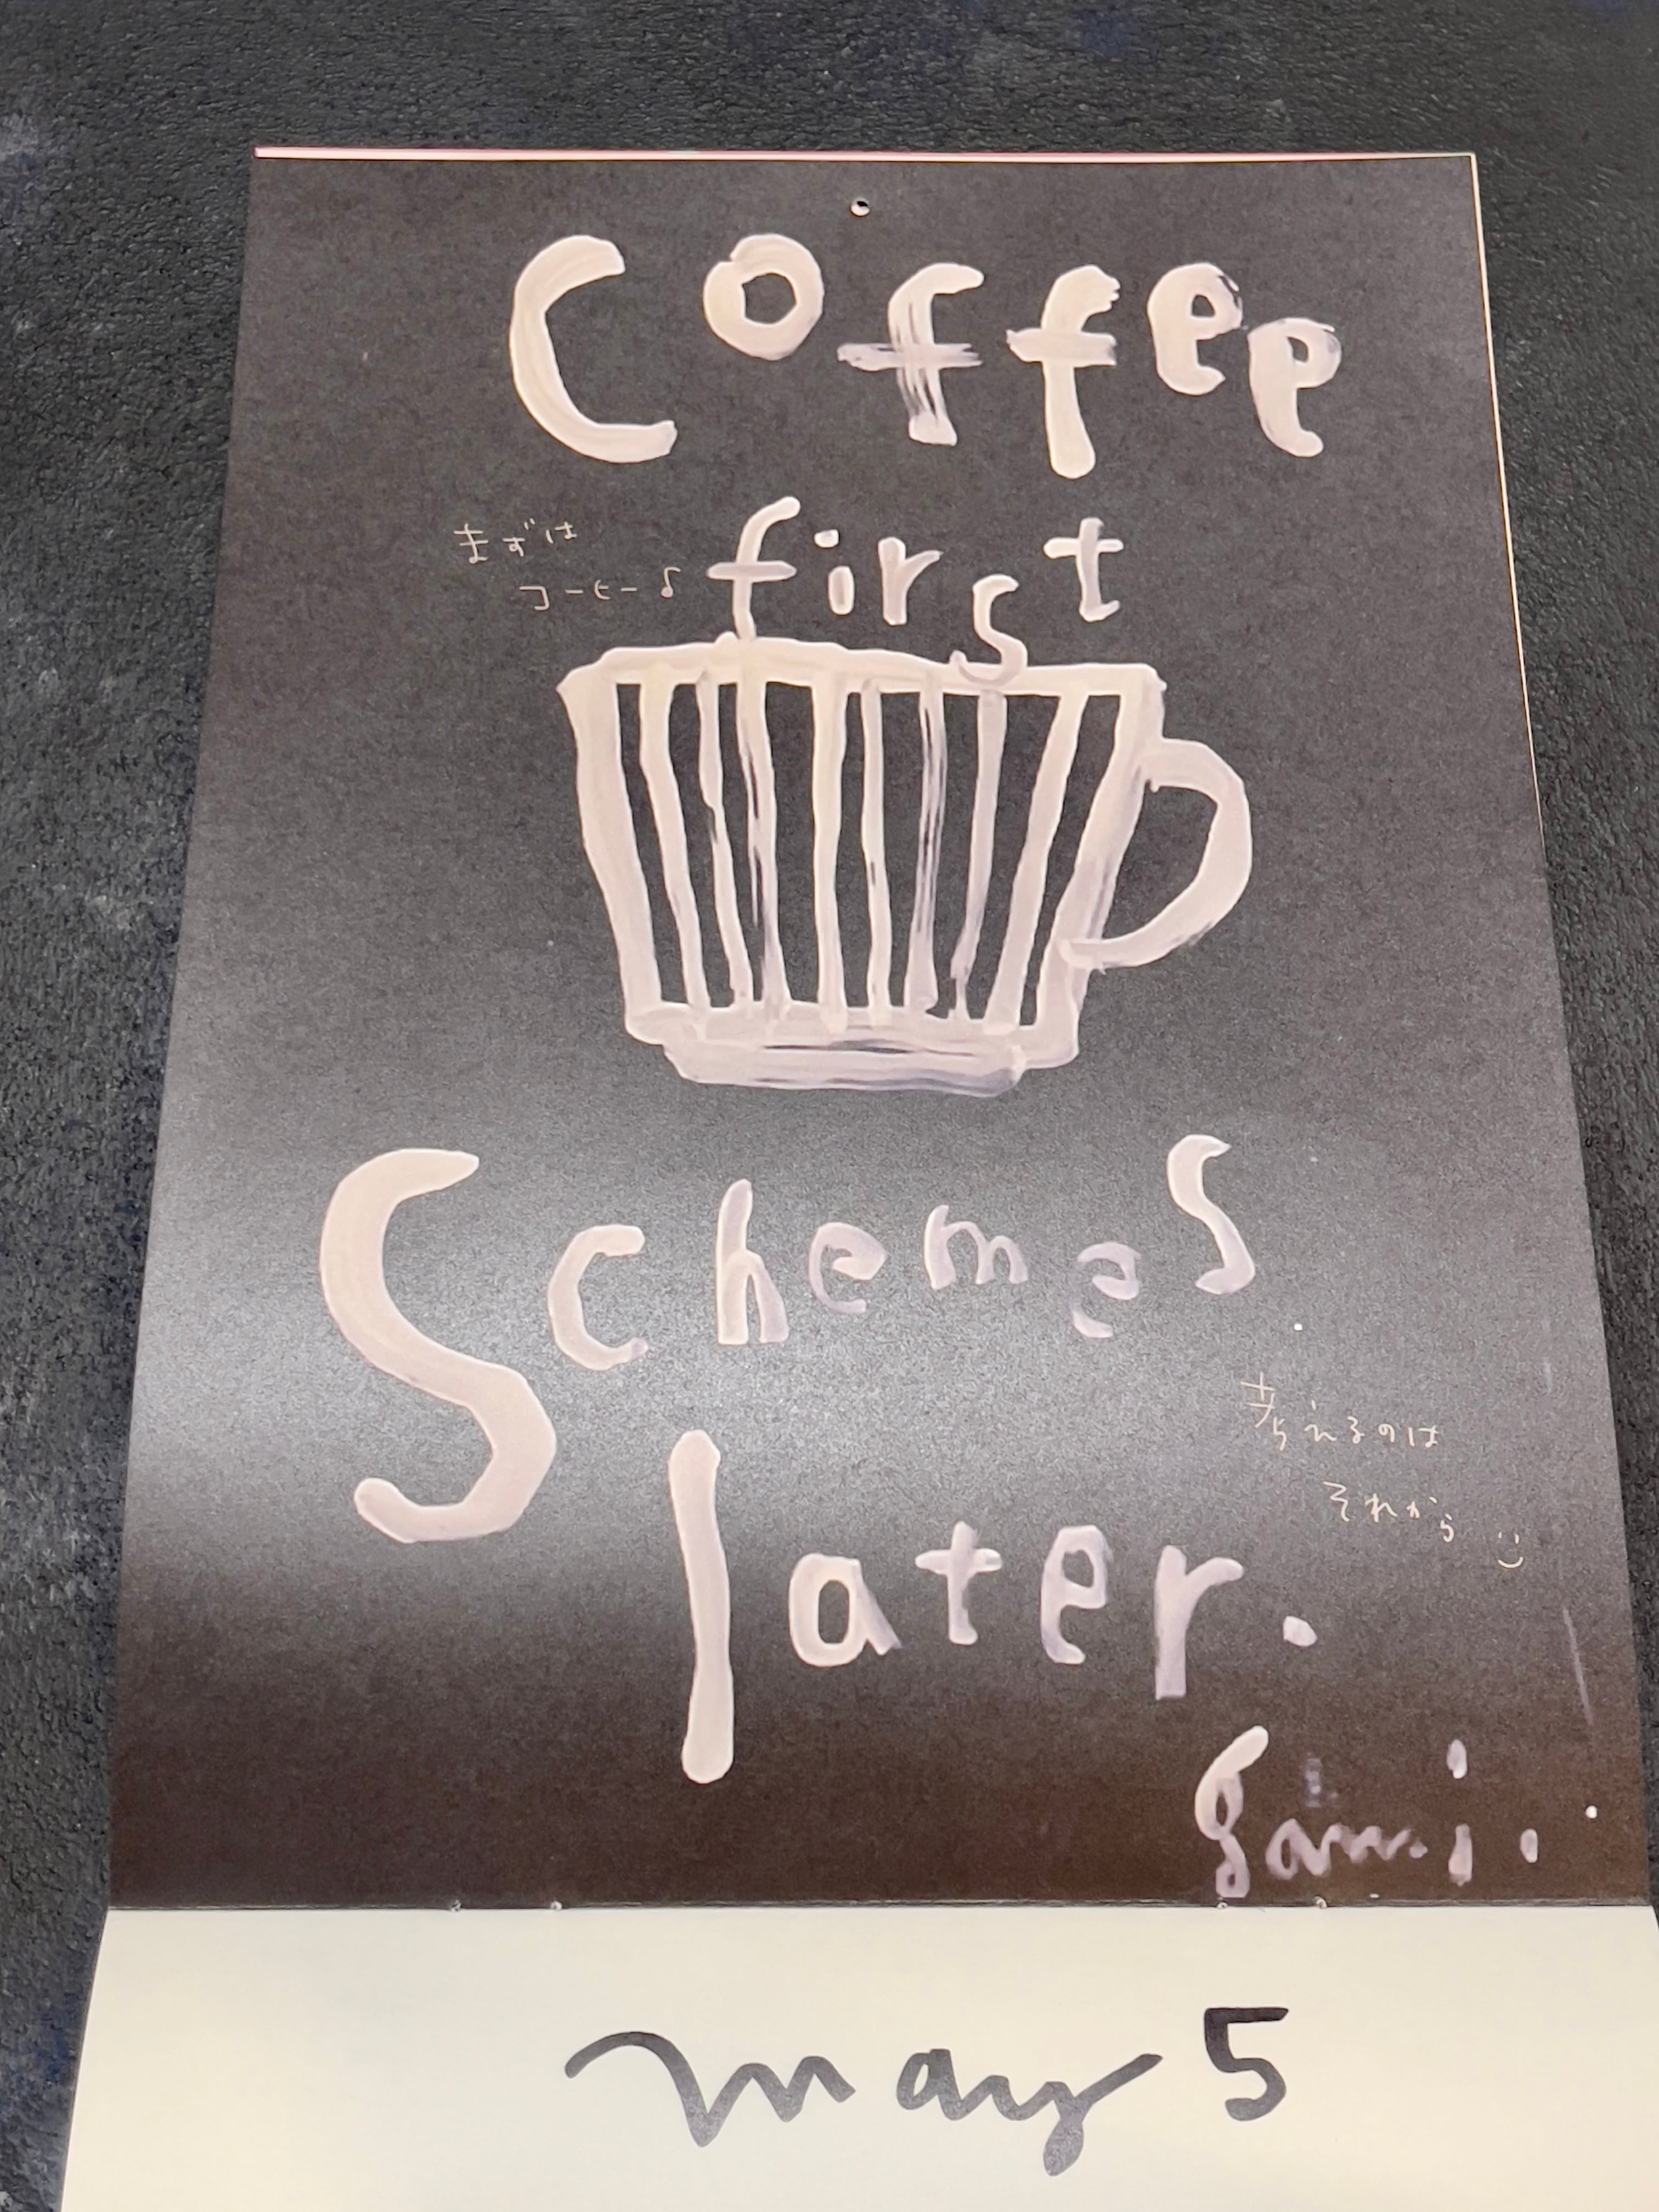 Coffee
first
まずは
コーヒー♪
Schemes
later.
考えるのは
それから
may 5